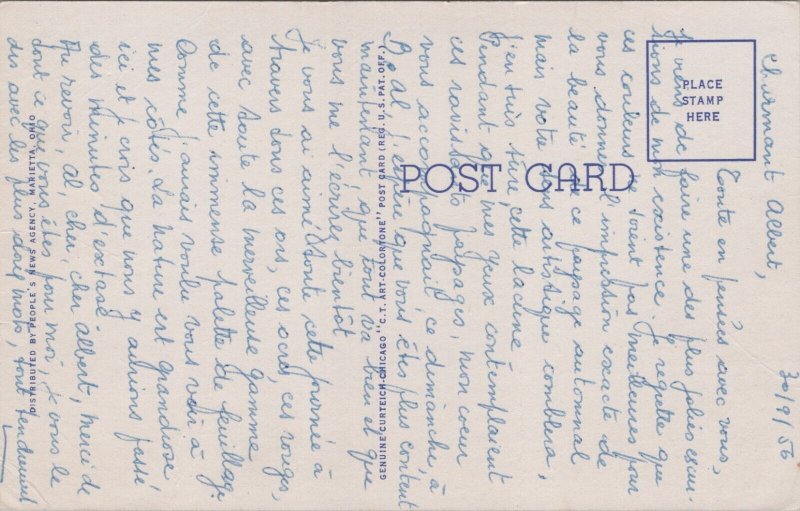 30/9/56
Charmant Albert,
Toute en pensées avec vous,
Je viens de faire une des plus jolies excur-
sions de mon existence. Je regrette que
ces couleurs ne soient pas meilleures pour
vous donner l'impression exacte de
la beauté de ce paysage automnal
mais votre sens artistique comblera,
j'en suis sûre, cette lacune.
Pendant que mes yeux contemplaient
ces ravissants paysages, mon cœur
vous accompagnait, ce dimanche, à
J'espère que vous êtes plus content
maintenant, que tout va bien et que
vous me l'écrirez bientôt
Je vous ai aimé toute cette journée à
travers tous ces ors, ces ocres, ces rouges,
avec toute la merveilleuse gamme
de cette immense palette de feuillage.
Comme j'aurais voulu vous voir à
mes côtés. La nature est grandiose
ici et je crois que nous y aurions passé
des minutes d'extase.
Au revoir, cher, cher Albert, merci de
tout ce que vous êtes pour moi, je vous le
dis avec les plus doux mots, tout tendrement
PLACE
STAMP
HERE
POST CARD
GENUINE CURTEICH-CHICAGO "C.T. ART-COLORTONE" POST CARD (REG. U.S. PAT. OFF.)
DISTRIBUTED BY PEOPLE'S NEWS AGENCY, MARIETTA, OHIO